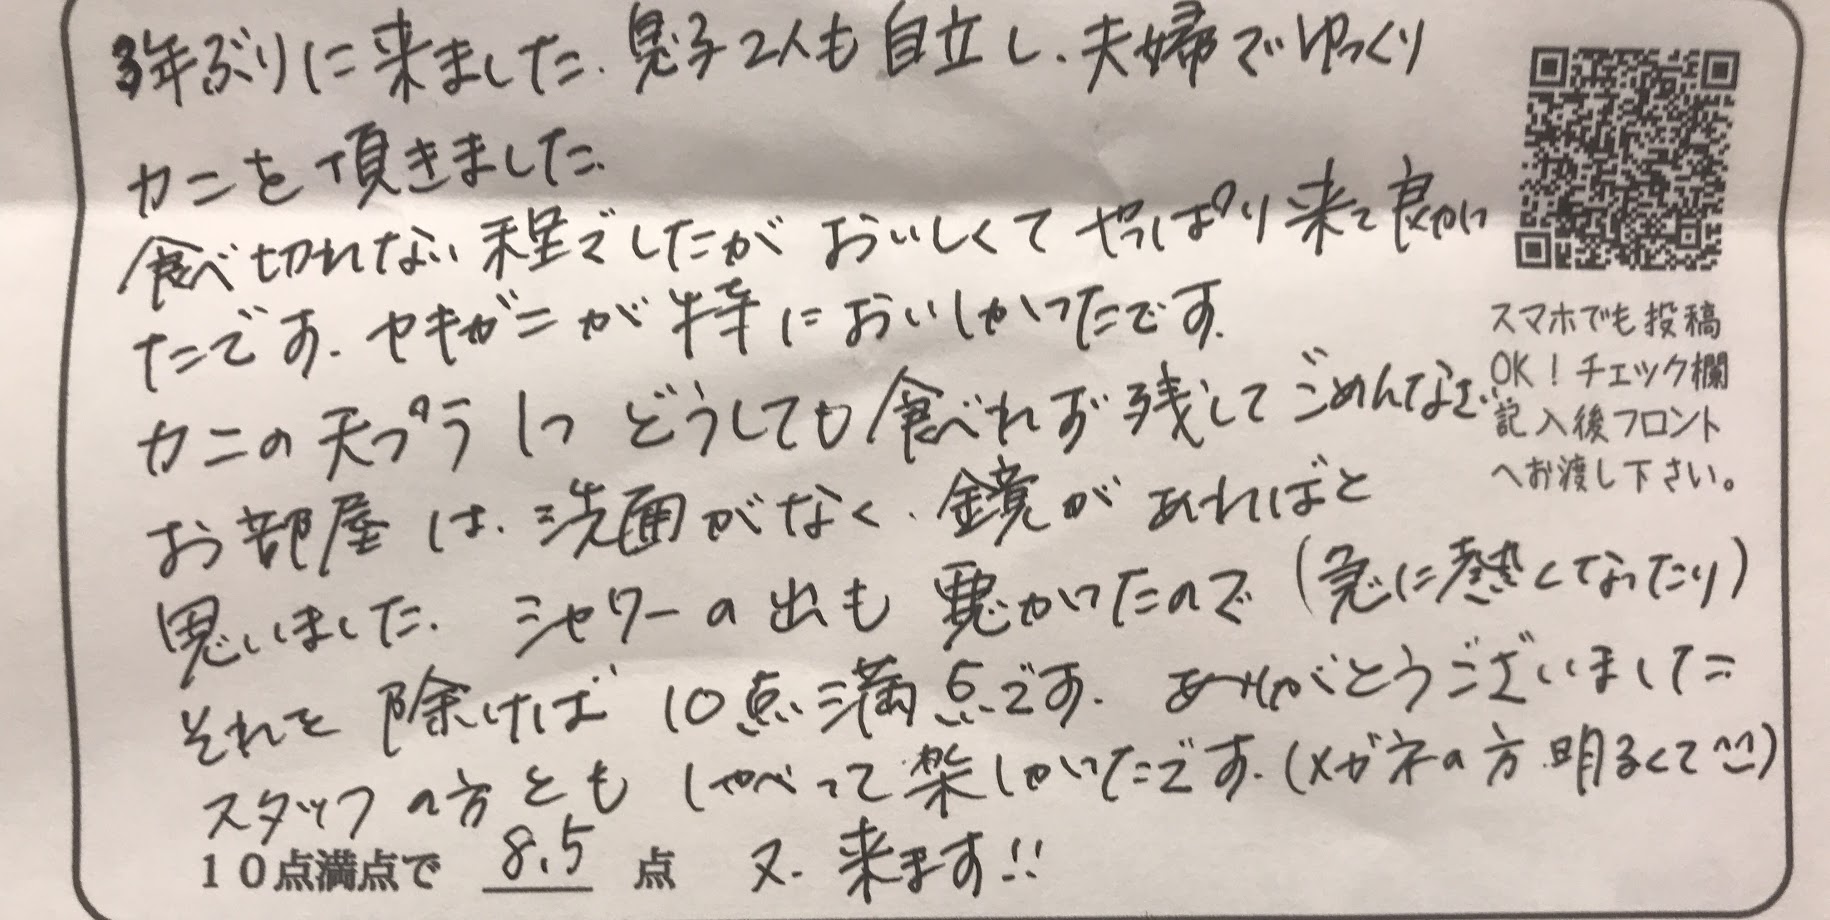 3年ぶりに来ました。息子2人も自立し、夫婦でゆっくり
カニを頂きました。
食べ切れない程でしたが おいしくて やっぱり来て良かっ
たです。ヤキガニが特においしかったです。
カニの天プラ1つ どうしても食べれず残してごめんなさい
お部屋は、洗面がなく、鏡があればと
思いました。 シャワーの出も悪かったので(急に熱くなったり)
それを除けば10点満点です。 ありがとうございました
スタッフの方とも しゃべって楽しかったです。(メガネの方 明るくて^^)
10点満点で 8.5 点 又、来ます!!
スマホでも投稿
OK!チェック欄
記入後フロント
へお渡し下さい。